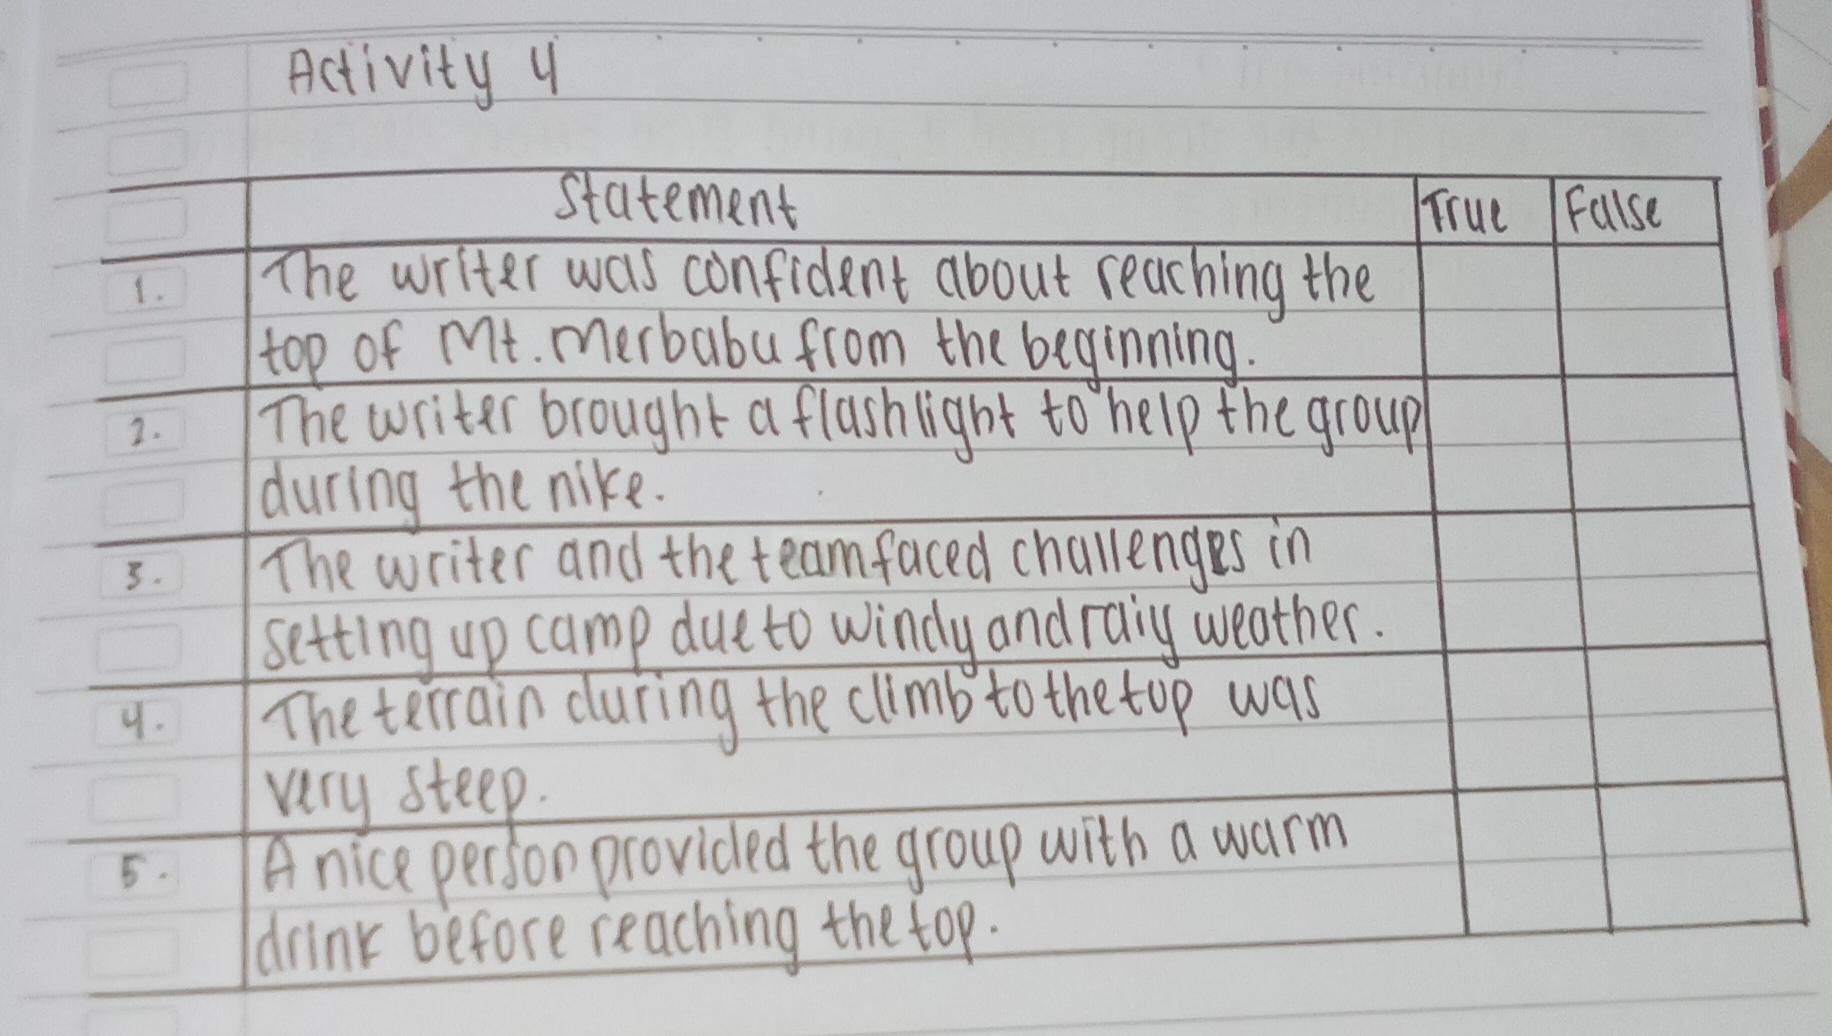 Activity 4
Statement True False
1. The writer was confident about reaching the
top of Mt. Merbabu from the beginning.
2. The writer brought a flashlight to help the group
during the nike.
3. The writer and the team faced challenges in
setting up camp due to windy and raiy weather.
4. The terrain during the climb to the top was
very steep.
5. A nice person provided the group with a warm
drink before reaching the top.